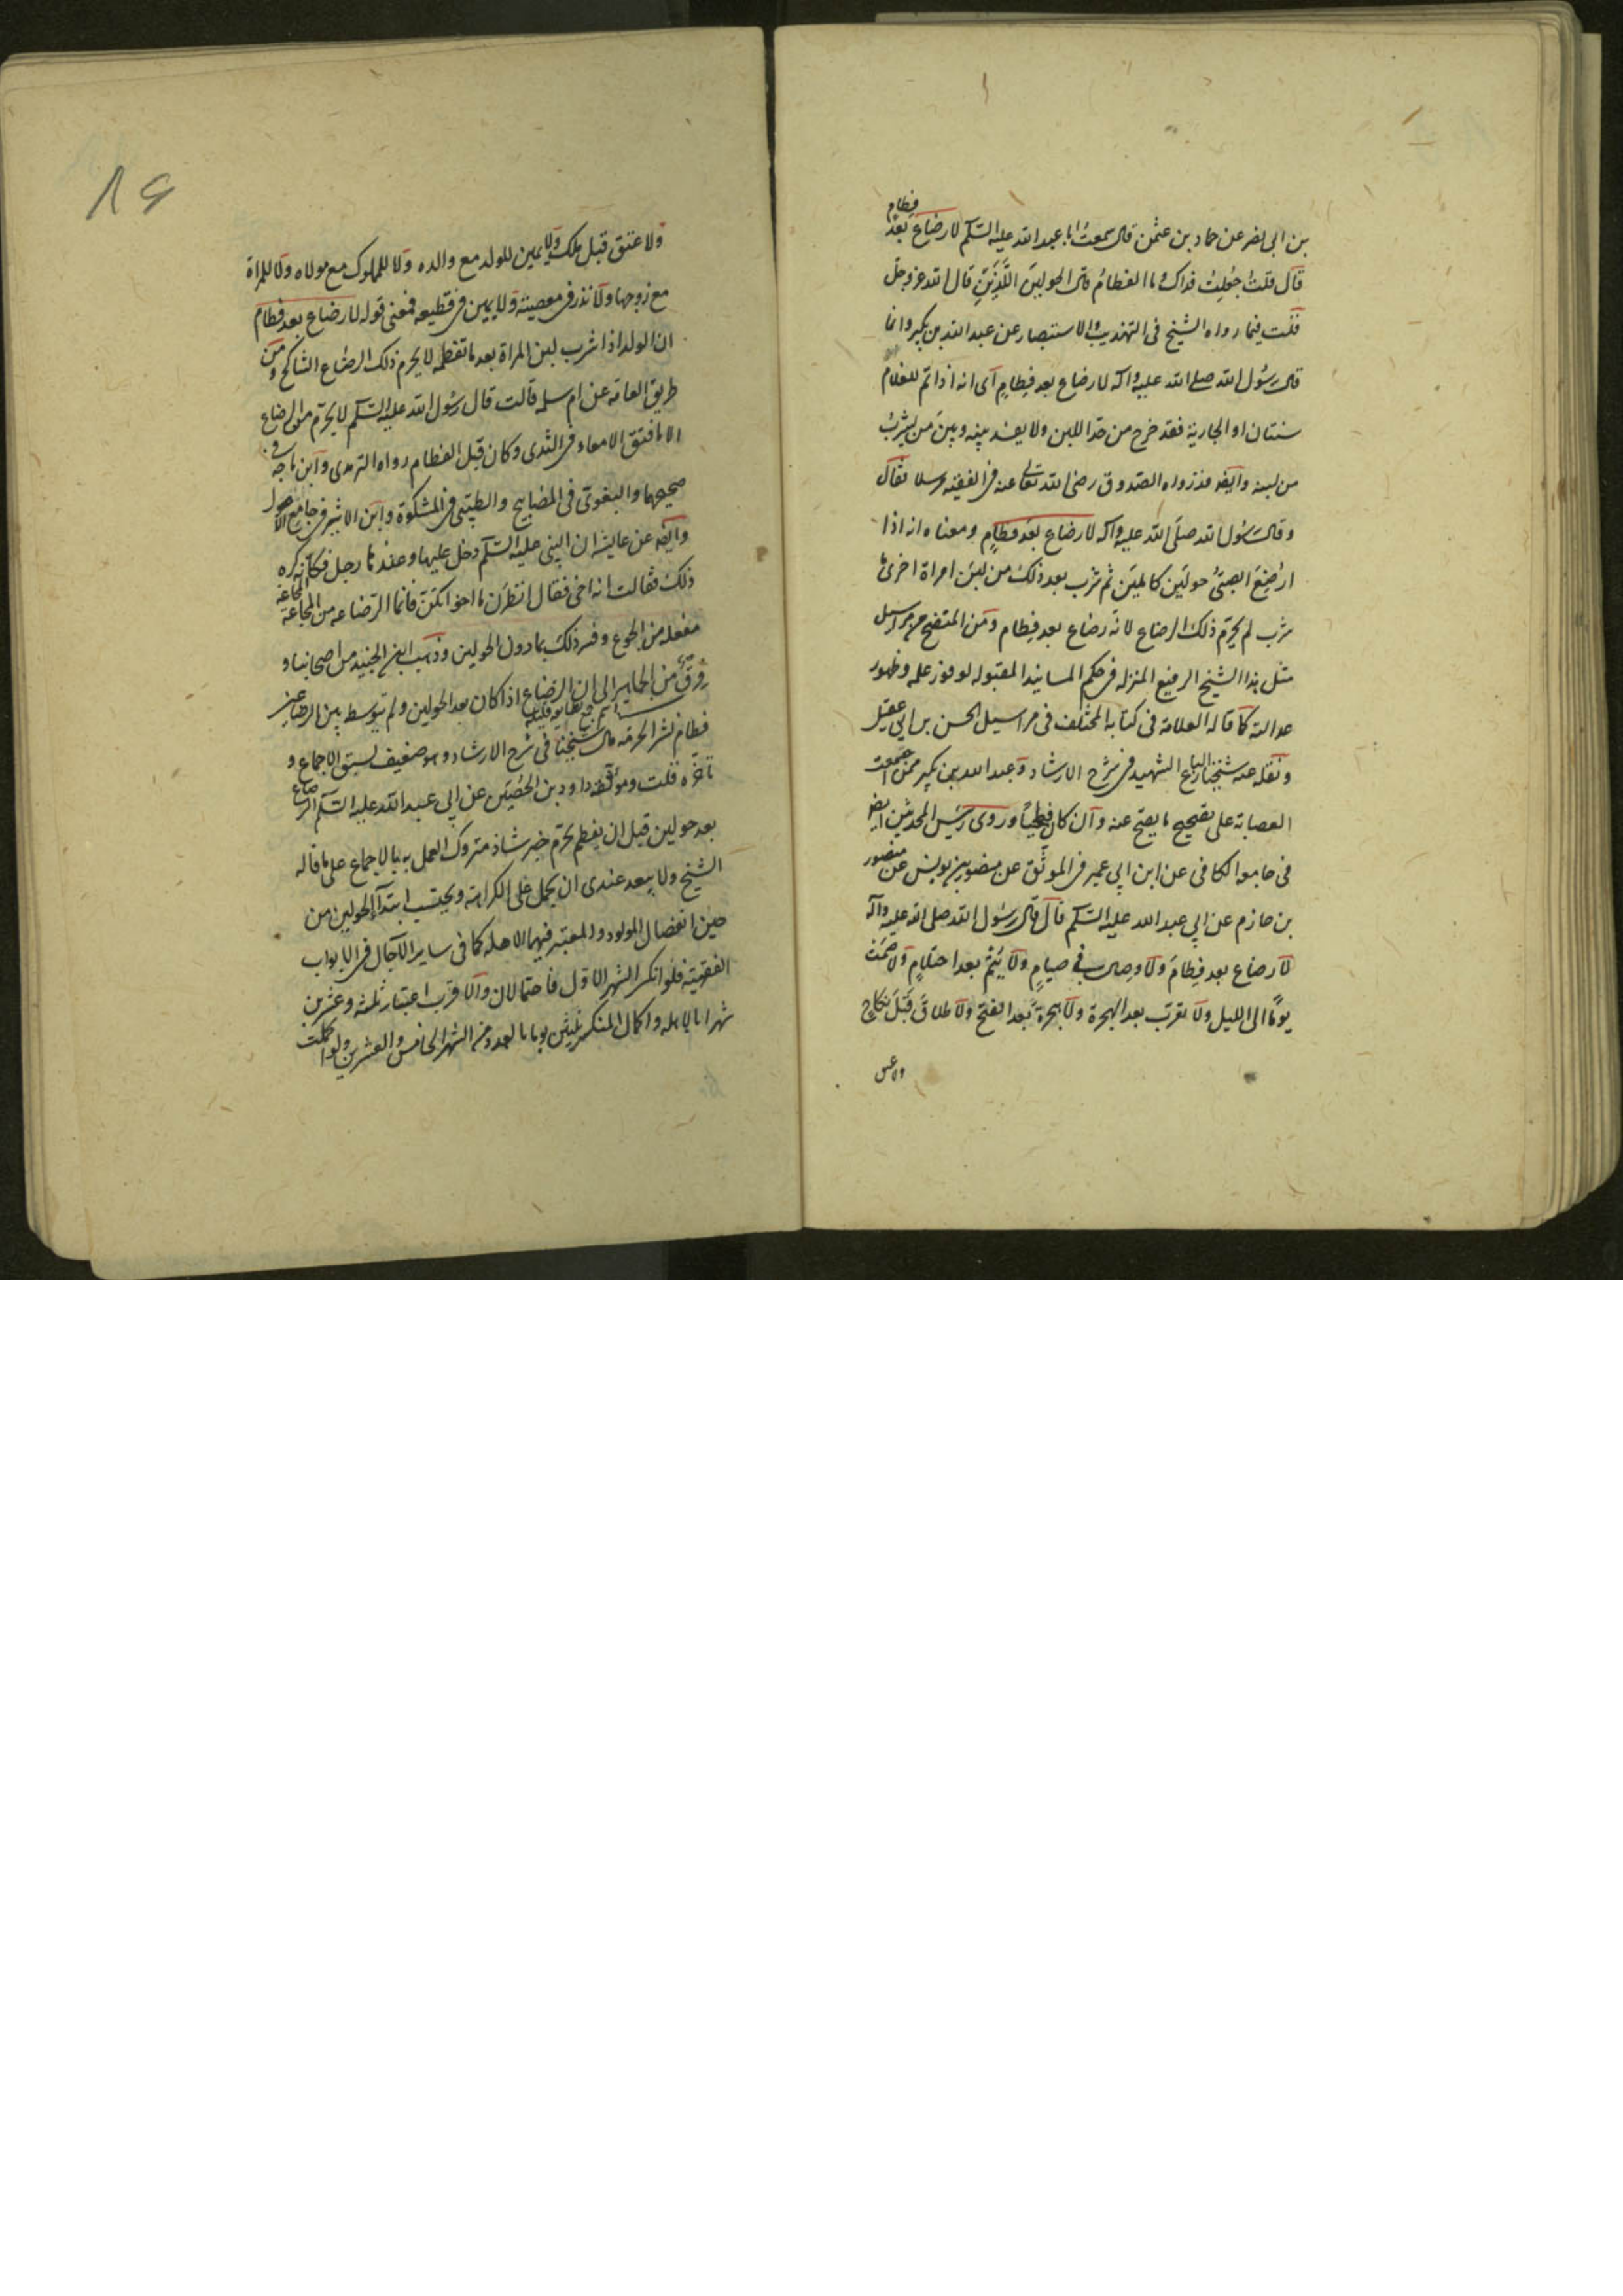 بن ابى نصر عن حماد بن عثمن قال سمعت ابا عبد الله عليه السّلم لا رضاع بعد فطام
قال قلت جُعِلتُ فداك وما الفطامُ قال الحولين اللَّذين قال الله عز وجل
قلت فيما رواه الشيخ فى التهذيب والاستبصار عن عبد الله بن بكير وانما
قال رسُول الله صلى الله عليه وآله لا رضاع بعد فِطامٍ اى انه اذا تم للغلام
سنتان او الجارية فقد خرج من حد اللبن ولا يفسد بينه وبين من يشربُ
من لبنه وايضا قد رواه الصدوق رضى الله تعالى عنه فى الفقيه مرسلا فقال
وقال رسُول الله صلّى الله عليه وآله لا رضاع بعد فطامٍ ومعناه انه اذا
ارضِعَ الصبىّ حولَين كاملَين ثم شرب بعد ذلك من لبن امراة اخرى ما
شرب لم يحرّم ذلك الرضاع لانّه رضاع بعد فِطام ومن المتضح ان مراسيل
مثل هذا الشيخ الرفيع المنزله فى حكم المسانيد المقبوله لوفور علمه وظهور
عدالته كما قاله العلامة فى كتابه المختلف فى مراسيل الحسن بن ابى عقيل
ونقله عنه شيخنا البارع الشهيد فى شرح الارشاد وعبد الله بن بكير ممن اجمعت
العصابة على تصحيح ما يصح عنه وان كان فطحيّاً وروى رئيس المحدثين ايضا
فى جامعه الكافى عن ابن ابى عمير فى الموثّق عن منصور بن يونس عن منصور
بن حازم عن ابى عبد الله عليه السّلم قال قال رسُول الله صلى الله عليه وآله
لا رضاع بعد فِطام ولا وصال فى صيامٍ ولا يُتمَ بعد احتلامٍ ولا صَمت
يومًا الى الليل ولا تعرّب بعد الهجرة ولا هجرة بعد الفتح ولا طلاق قبل نكاح
ولا عتق
ولا عتق قبل ملك ولا يمين للولد مع والده ولا للملوك مع مولاه ولا للمراة
مع زوجها ولا نذر فى معصية ولا يمين فى قطيعه فمعنى قوله لا رضاع بعد فطام
ان الولد اذا شرب لبن المراة بعد ما تفطمه لا يحرم ذلك الرضاع التناكح ومن
طريق العامة عن ام سلمه قالت قال رسُول الله عليه السّلم لا يحرّم من الرضاع
الا ما فتق الامعاء فى الثدى وكان قبل الفطام رواه الترمدى وابن ماجه فى
صحيحهما والبغوى فى المصابيح والطيبى فى المشكوة وابن الاثير فى جامع الاصول
وايضا عن عايشه ان النبى عليه السّلم دخل عليها وعندها رجل فكانّه كره
ذلك فقالت انه اخى فقال انظرن ما اخوانكنّ فانما الرّضاعه من المجاعة المجاعة
مفعله من الجوع وفسر ذلك بما دون الحولين وذهب ابن الجنيد من اصحابنا و
من الجماهير الى ان الرضاع اذا كان بعد الحولين ولم يتوسط بين الرضاعين
فطام نشر الحرمة قال شيخنا فى شرح الارشاد وهو ضعيف لسبق الاجماع و
تاخره قلت وموثّقه داود بن الحُصَين عن ابى عبد الله عليه السّلم الرضاع
بعد حولين قبل ان يفطم يحرّم خبر شاذ متروك العمل به بالاجماع على ما قاله
الشيخ ولا يبعد عندى ان يحمل على الكراهة ويحتسب ابتداء الحولين من
حين انفصال المولود والمعتبر فيهما الاهلة كما فى ساير الآجال فى الابواب
الفقهيّة فلو انكسر الشهر الاوّل فاحتمالان والاقرب اعتبار ثلثه وعشرين
شهرا بالاهله واكمال المنكسر ثلثين يوما بالعدد من الشهر الخامس والعشرين ولو اكملت